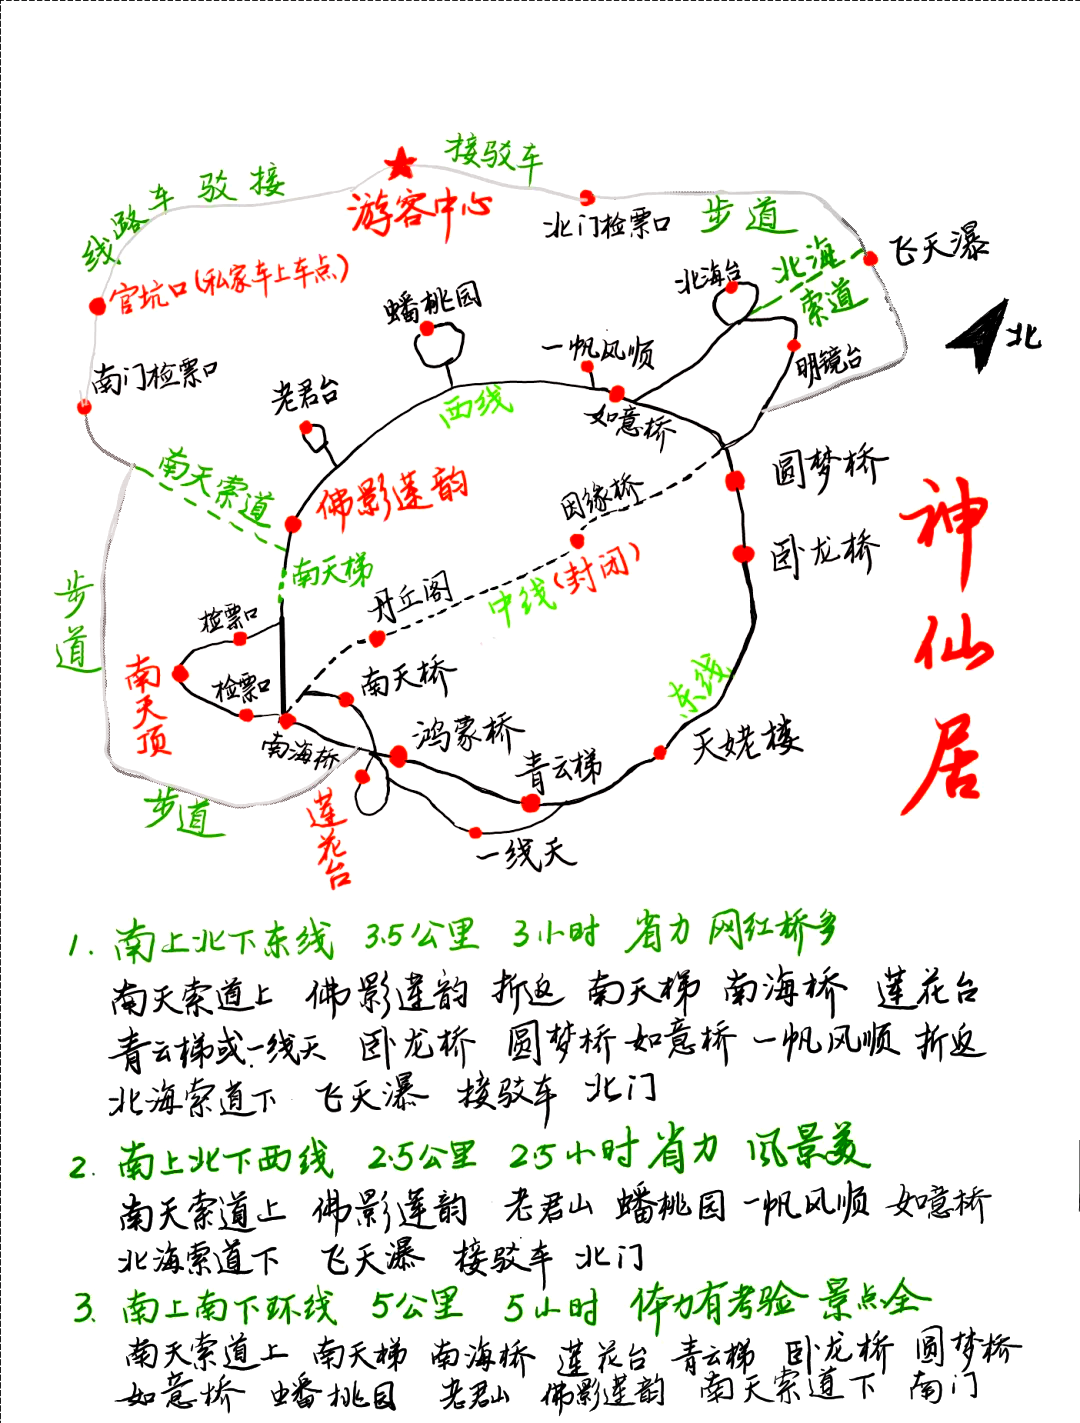 接驳车
线路车驳接
游客中心
北门检票口
步道
飞天瀑
北海
索道
北海台
官坑口(私家车上车点)
蟠桃园
一帆风顺
明镜台
北
南门检票口
老君台
西线
如意桥
南天索道
佛影莲韵
因缘桥
圆梦桥
神仙居
南天梯
中线(封闭)
卧龙桥
步道
检票口
丹丘阁
南天顶
检票口
南天桥
东线
南海桥
鸿蒙桥
青云梯
天姥楼
步道
莲花台
一线天
1. 南上北下东线 3.5公里 3小时 省力 网红桥多
南天索道上 佛影莲韵 折返 南天梯 南海桥 莲花台
青云梯或一线天 卧龙桥 圆梦桥 如意桥 一帆风顺 折返
北海索道下 飞天瀑 接驳车 北门
2. 南上北下西线 2.5公里 2.5小时 省力 风景美
南天索道上 佛影莲韵 老君山 蟠桃园 一帆风顺 如意桥
北海索道下 飞天瀑 接驳车 北门
3. 南上南下环线 5公里 5小时 体力有考验 景点全
南天索道上 南天梯 南海桥 莲花台 青云梯 卧龙桥 圆梦桥
如意桥 蟠桃园 老君山 佛影莲韵 南天索道下 南门